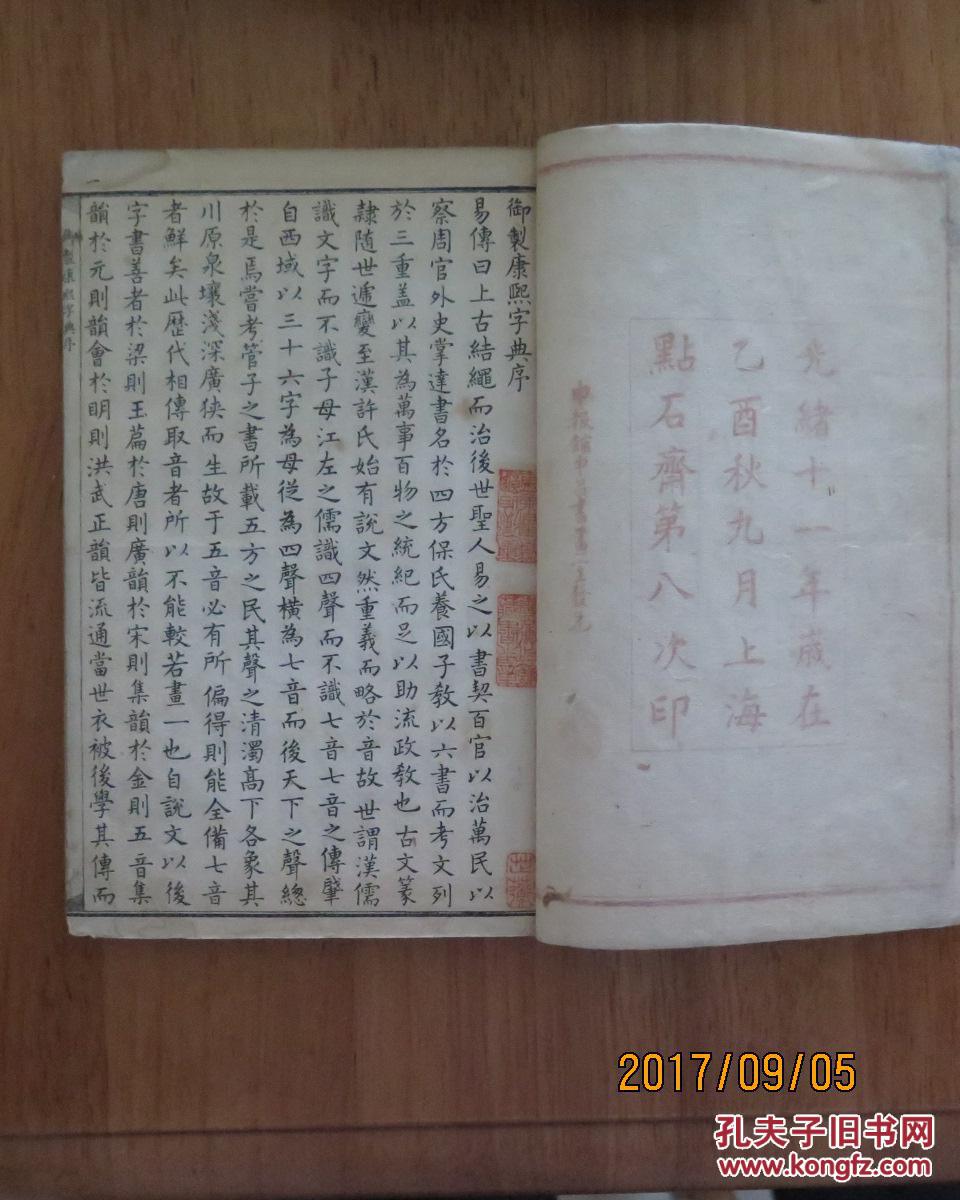 光緒十一年歲在
乙酉秋九月上海
點石齋第八次印
御製康熙字典序
易傳曰上古結繩而治後世聖人易之以書契百官以治萬民以
察周官外史掌達書名於四方保氏養國子教以六書而考文列
於三重盖以其為萬事百物之統紀而足以助流政教也古文篆
隸随世遞變至漢許氏始有說文然重義而略於音故世謂漢儒
識文字而不識子母江左之儒識四聲而不識七音七音之傳肇
自西域以三十六字為母從為四聲橫為七音而後天下之聲總
於是焉嘗考管子之書所載五方之民其聲之清濁高下各象其
川原泉壤淺深廣狹而生故于五音必有所偏得則能全備七音
者鮮矣此歷代相傳取音者所以不能較若畫一也自說文以後
字書善者於梁則玉篇於唐則廣韻於宋則集韻於金則五音集
韻於元則韻會於明則洪武正韻皆流通當世衣被後學其傳而
御製康熙字典序
一
2017/09/05
孔夫子旧书网
www.kongfz.com